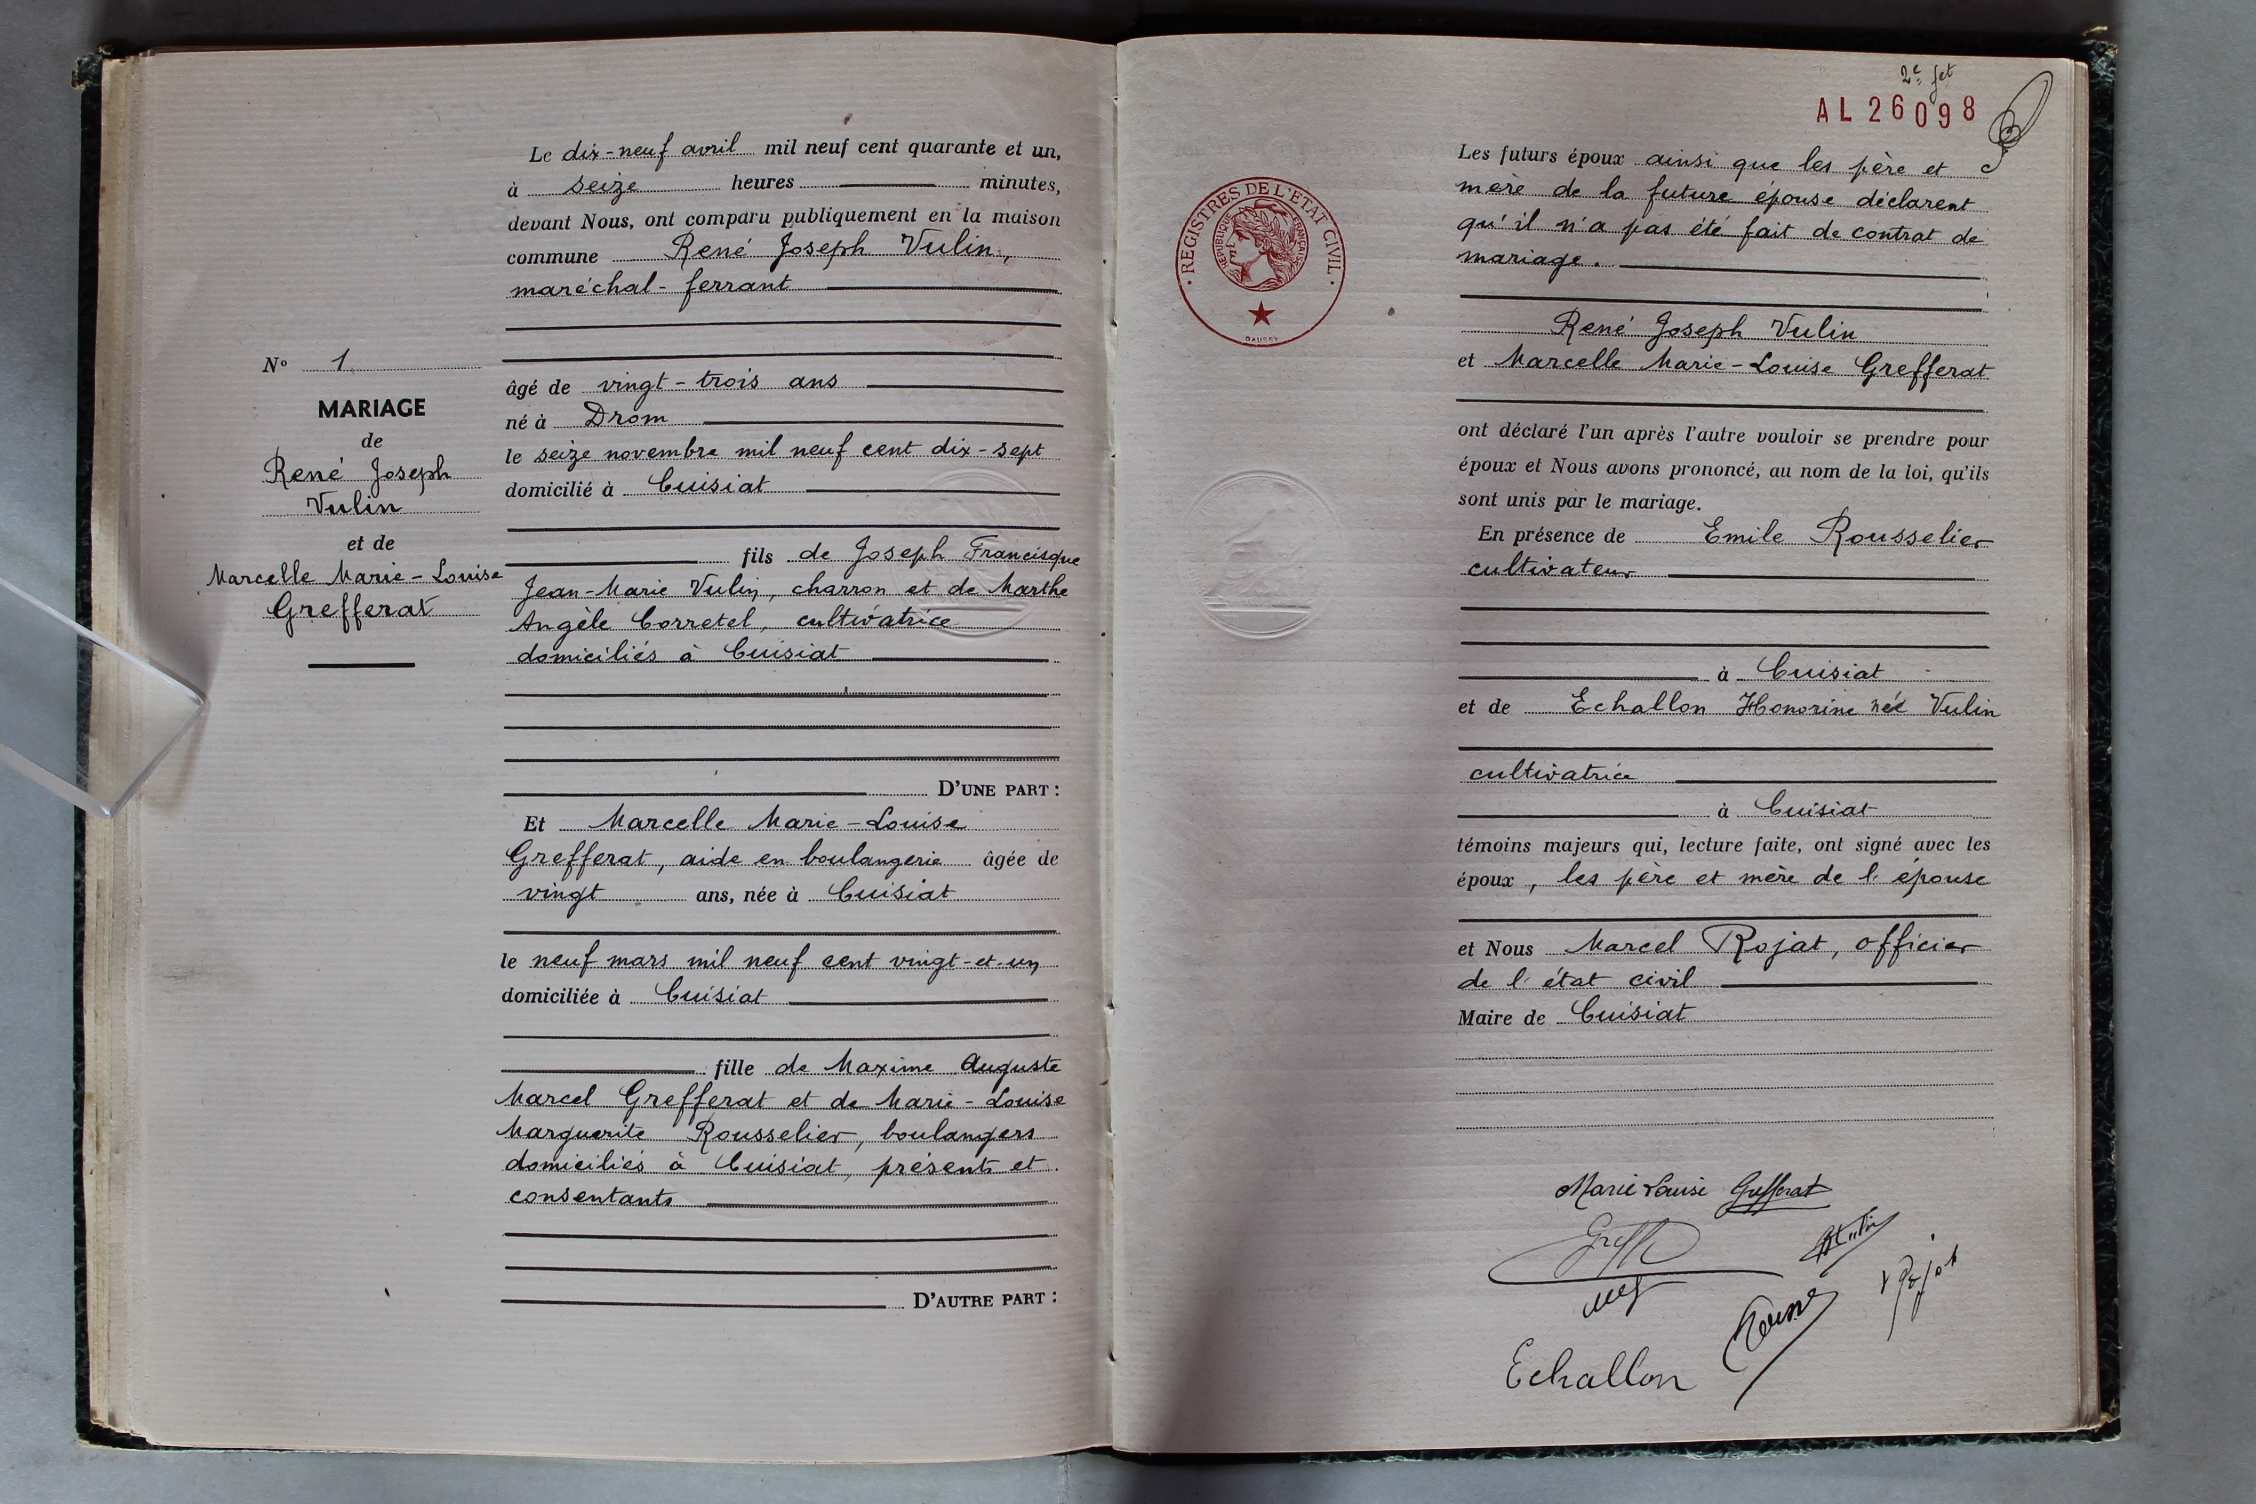 N° 1
MARIAGE
de
René Joseph
Vulin
et de
Marcelle Marie-Louise
Grefferat
Le dix-neuf avril mil neuf cent quarante et un,
à seize heures minutes,
devant Nous, ont comparu publiquement en la maison
commune René Joseph Vulin,
maréchal-ferrant
âgé de vingt-trois ans
né à Drom
le seize novembre mil neuf cent dix-sept
domicilié à Cuisiat
fils de Joseph Francisque
Jean-Marie Vulin, charron et de Marthe
Angèle Corretel, cultivatrice
domiciliés à Cuisiat
D'UNE PART :
Et Marcelle Marie-Louise
Grefferat, aide en boulangerie âgée de
vingt ans, née à Cuisiat
le neuf mars mil neuf cent vingt-et-un
domiciliée à Cuisiat
fille de Maxime Auguste
Marcel Grefferat et de Marie-Louise
Marguerite Rousselier, boulangers
domiciliés à Cuisiat, présents et
consentants
D'AUTRE PART :
AL 26098
REGISTRES DE L'ETAT CIVIL
REPUBLIQUE FRANCAISE
Les futurs époux ainsi que les père et
mère de la future épouse déclarent
qu'il n'a pas été fait de contrat de
mariage.
René Joseph Vulin
et Marcelle Marie-Louise Grefferat
ont déclaré l'un après l'autre vouloir se prendre pour
époux et Nous avons prononcé, au nom de la loi, qu'ils
sont unis par le mariage.
En présence de Emile Rousselier
cultivateur
à Cuisiat
et de Echallon Honorine née Vulin
cultivatrice
à Cuisiat
témoins majeurs qui, lecture faite, ont signé avec les
époux, les père et mère de l'épouse
et Nous Marcel Rojat, officier
de l'état civil
Maire de Cuisiat
Marie Louise Grefferat
Echallon